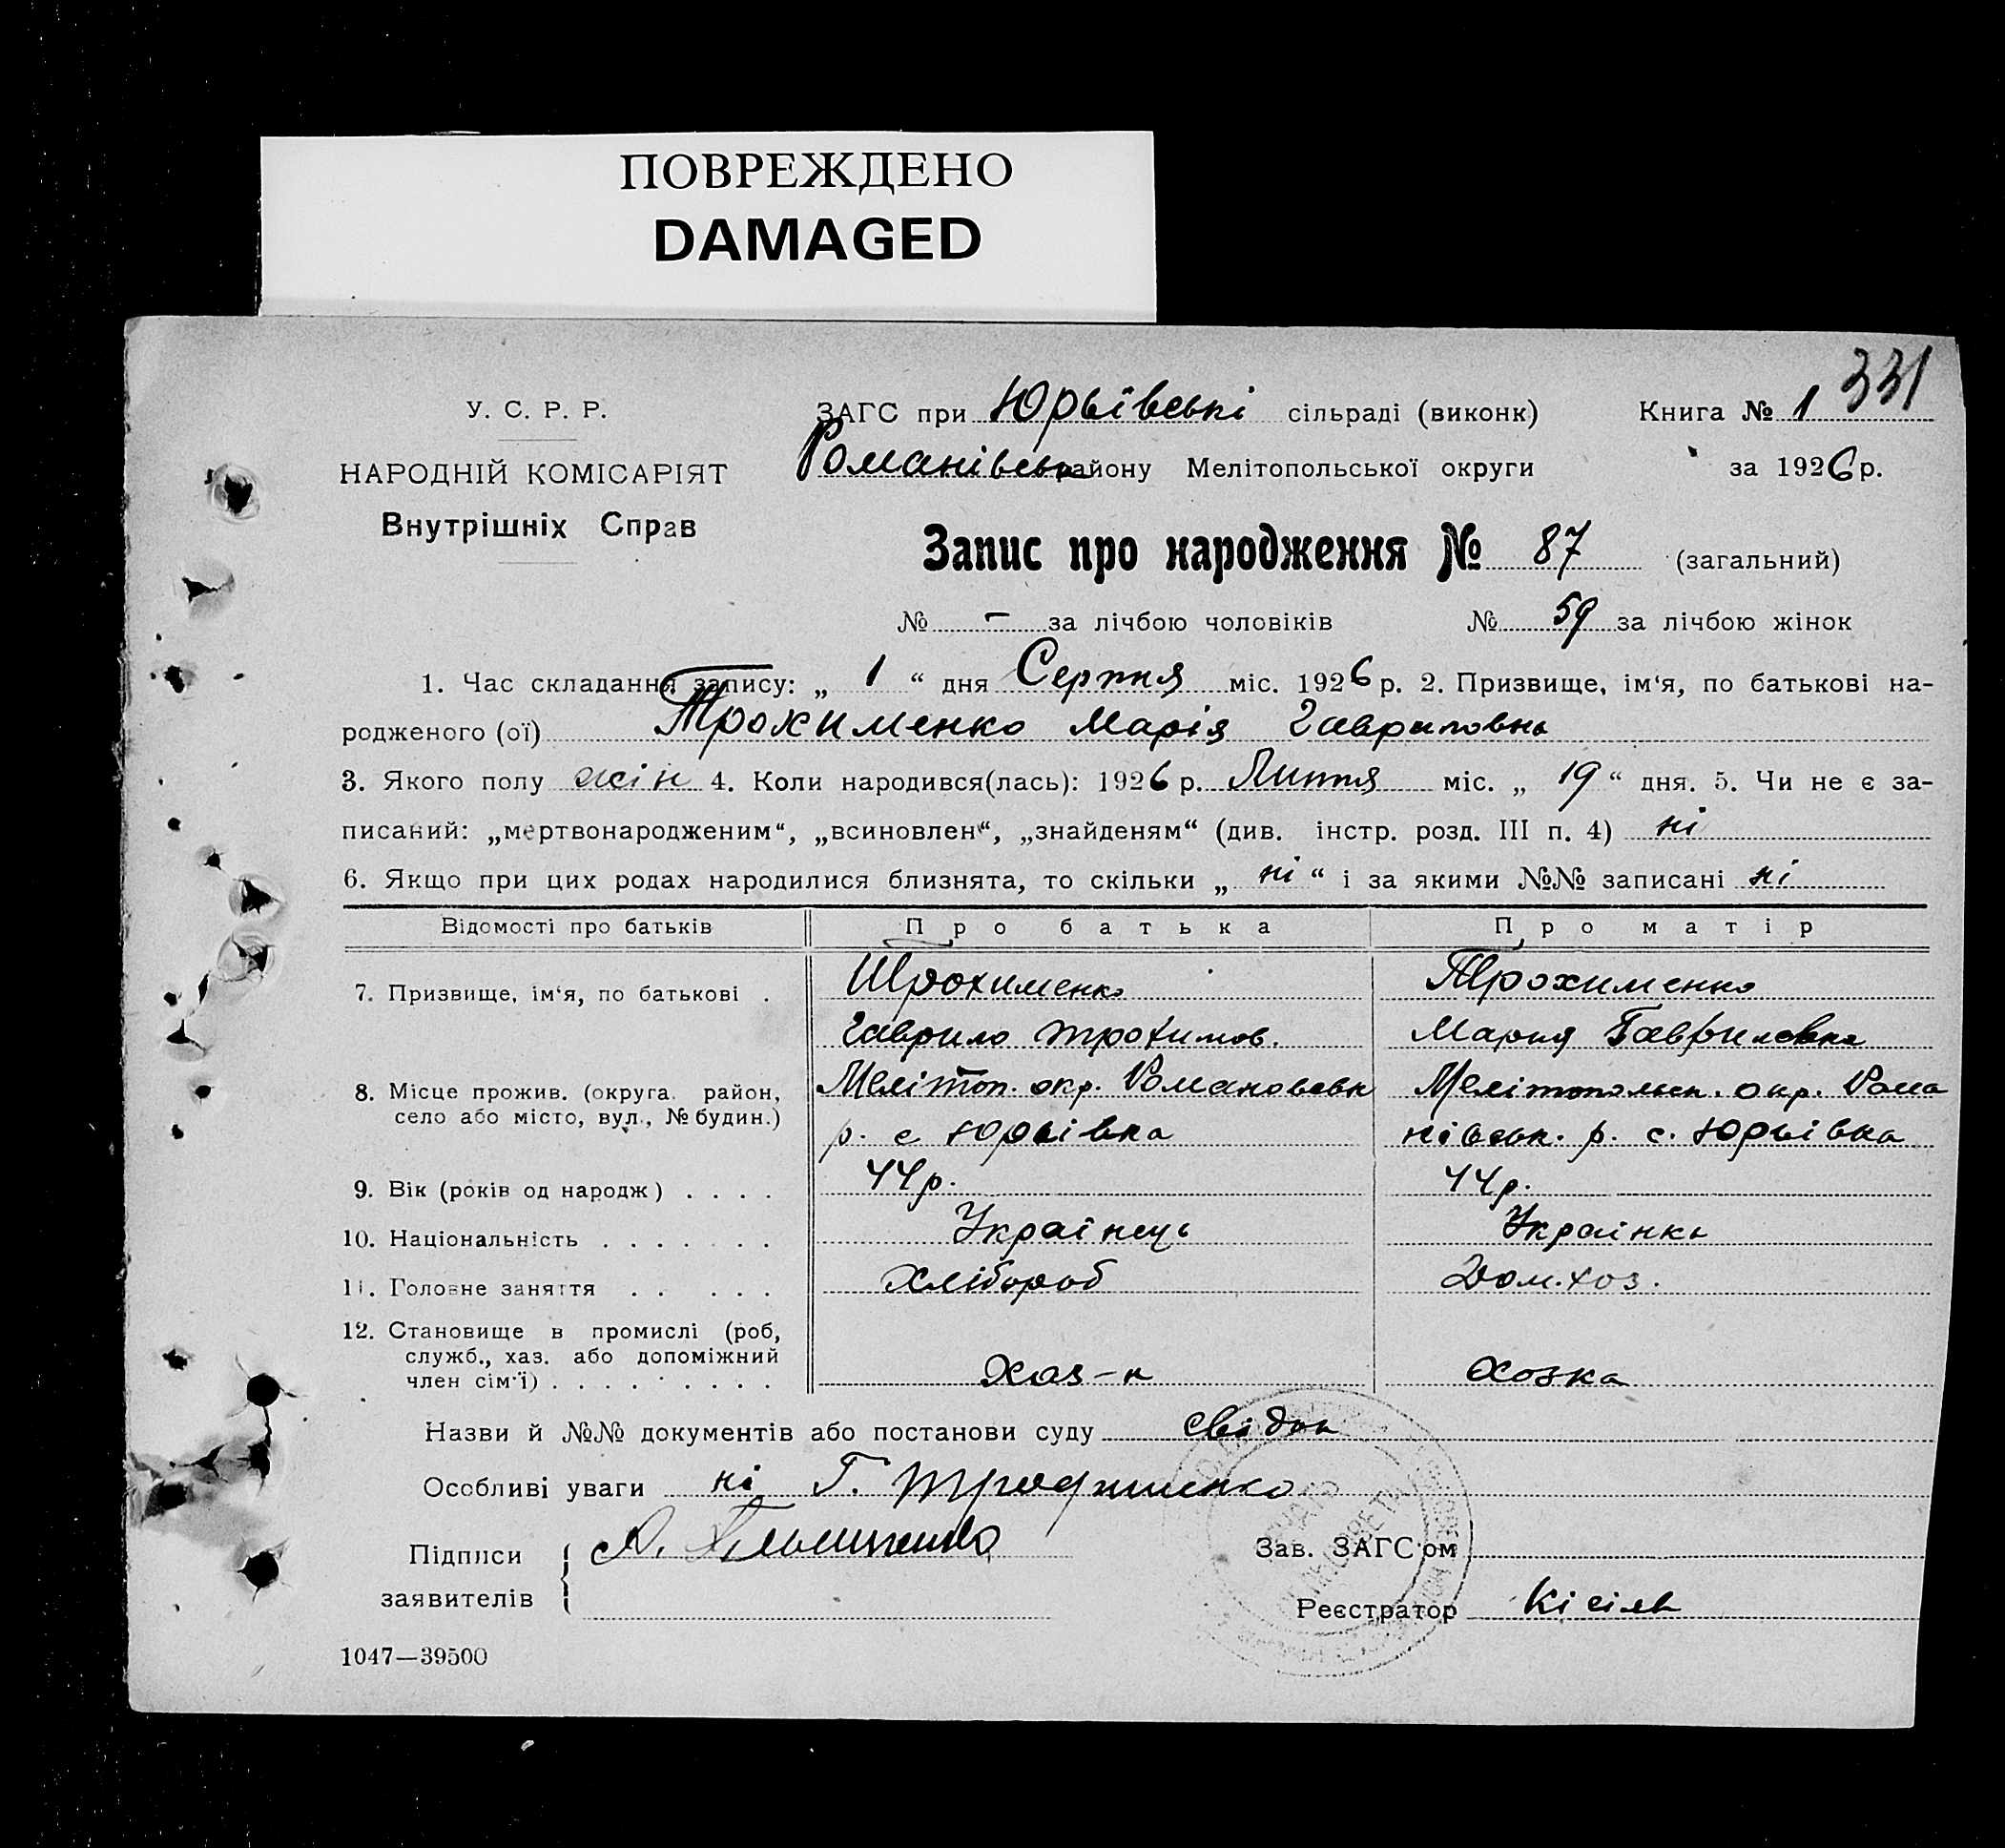 ПОВРЕЖДЕНО
DAMAGED
331
У. С. Р. Р.
НАРОДНІЙ КОМІСАРІЯТ
Внутрішніх Справ
ЗАГС при Юрьївські сільраді (виконк) Книга № 1
Романівськ району Мелітопольської округи за 1926 р.
Запис про народження № 87 (загальний)
№ – за лічбою чоловіків № 59 за лічбою жінок
1. Час складання запису: „ 1 “ дня Серпня міс. 1926 р. 2. Призвище, ім‘я, по батькові на-
родженого (ої) Трохименко Марія Гавриловна
3. Якого полу жін 4. Коли народився(лась): 1926 р. Липня міс. „ 19 “ дня. 5. Чи не є за-
писаний: „мертвонародженим“, „всиновлен“, „знайденям“ (див. інстр. розд. III п. 4) ні
6. Якщо при цих родах народилися близнята, то скільки „ ні “ і за якими №№ записані ні
Відомості про батьків Про батька Про матір
7. Призвище, ім‘я, по батькові . Трохименко Трохименко
Гаврило Трохимов. Мария Гавриловна
8. Місце прожив. (округа, район, село або місто, вул., № будин.) Мелітоп. окр. Романовськ Мелітопольск. окр. Рома
р. с Юрьівка нівськ. р. с. Юрьівка
9. Вік (років од народж) . . . . 44р. 44р.
10. Національність . . . . . . . Українець Українка
11. Головне заняття . . . . . Хлібороб Дом.хоз.
12. Становище в промислі (роб, служб., хаз. або допоміжний член сім‘ї) . . . . . . . . . Хаз-н Хозка
Назви й №№ документів або постанови суду свідок
Особливі уваги ні Г. Трофименко
Підписи
заявителів
Зав. ЗАГС‘ом
Реєстратор Кісіль
1047—39500